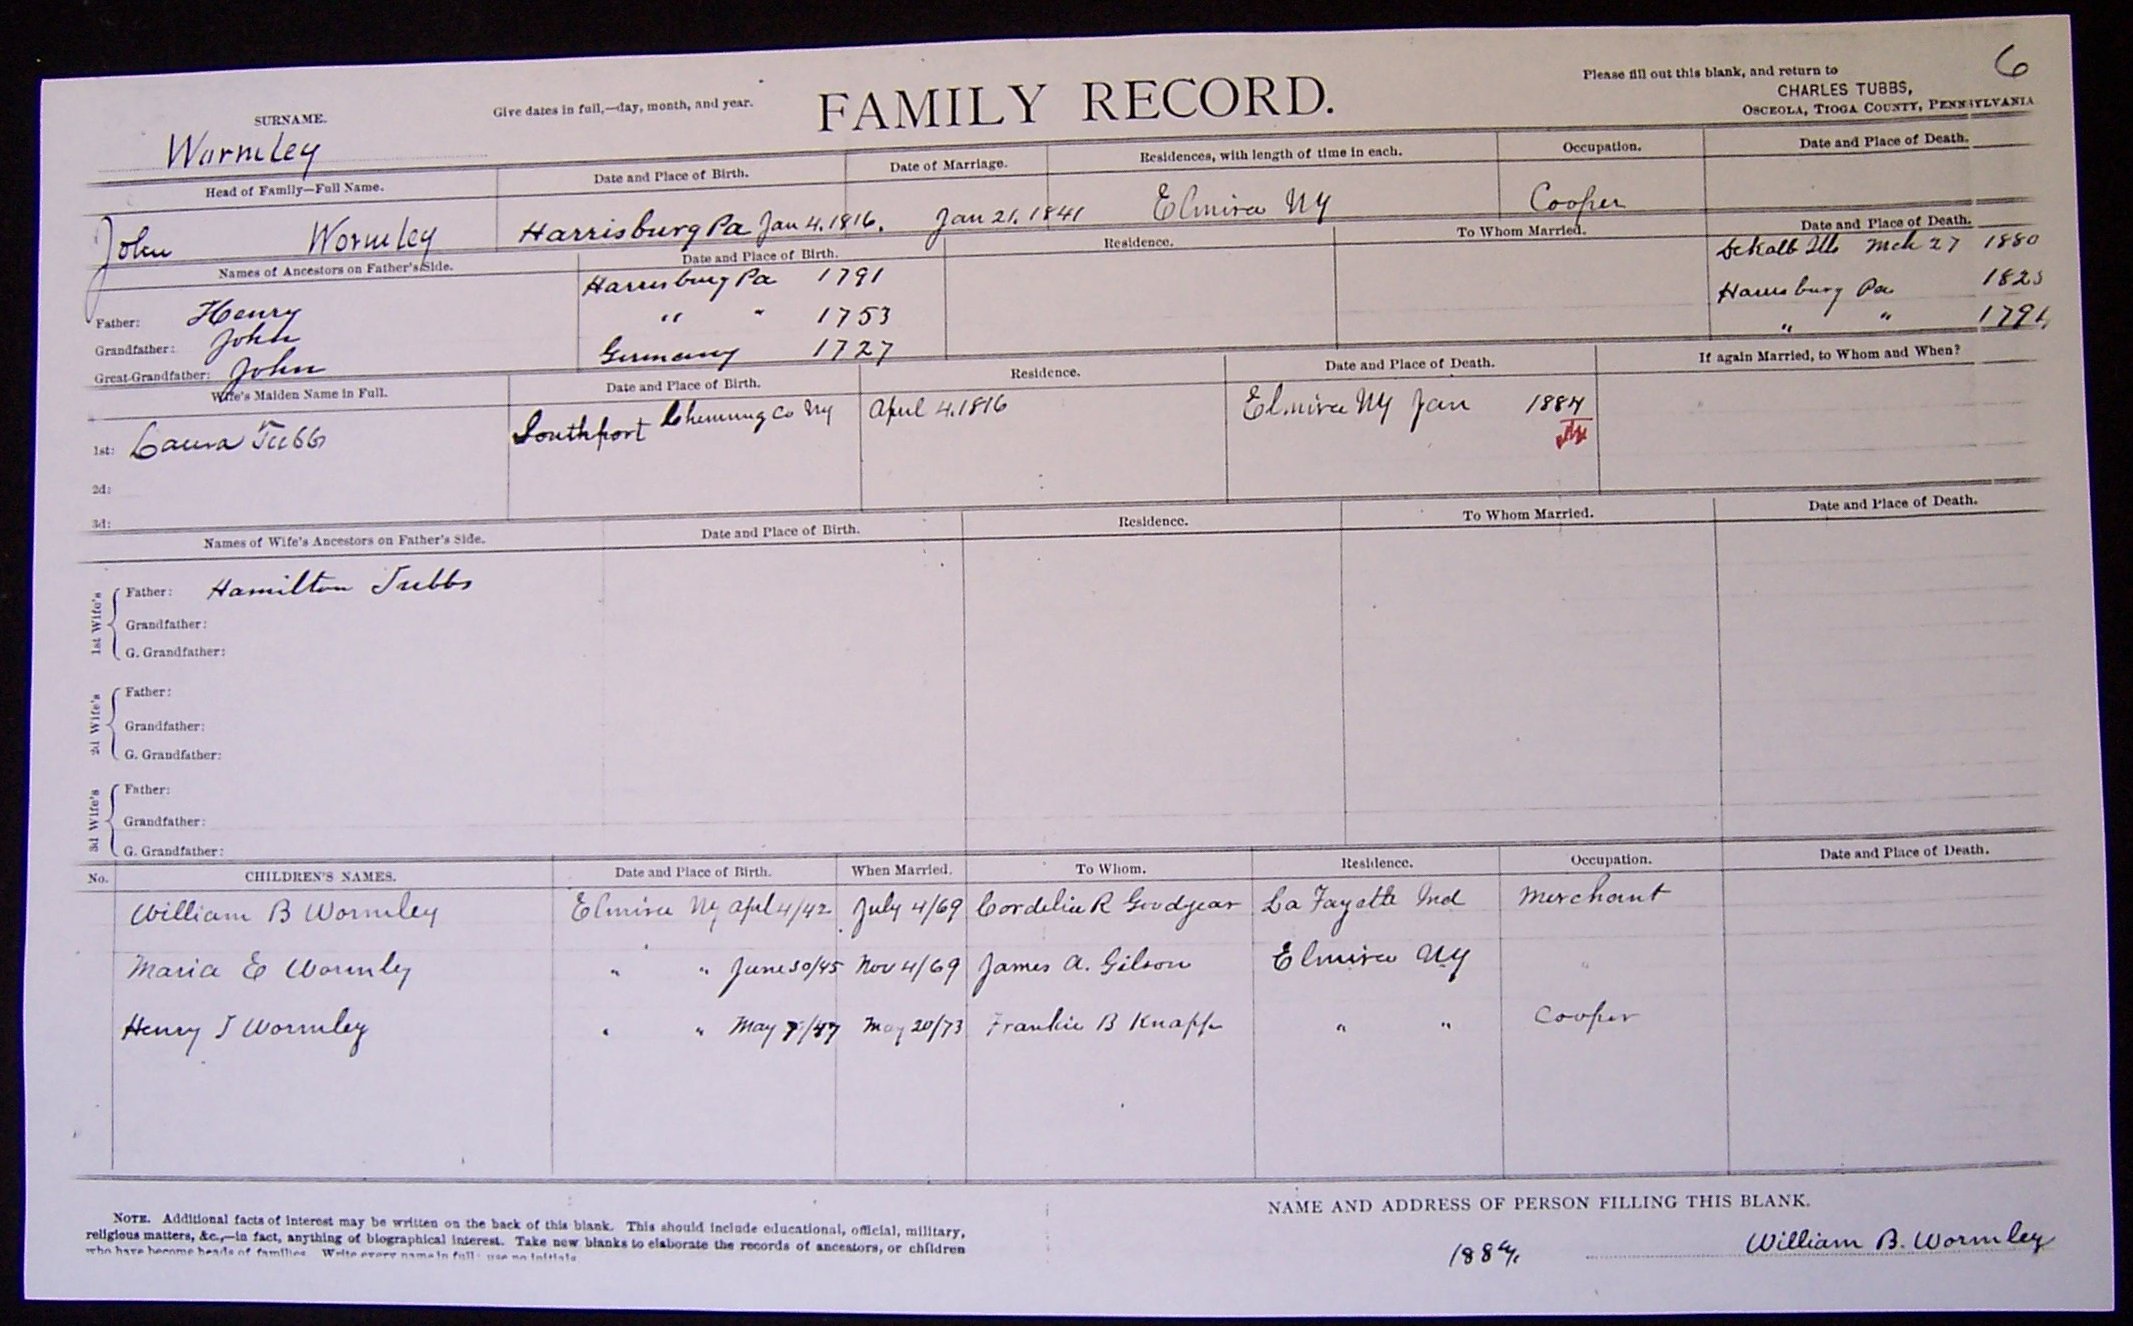 6
Please fill out this blank, and return to
CHARLES TUBBS,
OSCEOLA, TIOGA COUNTY, PENNSYLVANIA
Give dates in full,—day, month, and year.
FAMILY RECORD.
SURNAME.
Wormley
Head of Family—Full Name. Date and Place of Birth. Date of Marriage. Residences, with length of time in each. Occupation. Date and Place of Death.
John Wormley Harrisburg Pa Jan 4. 1816. Jan 21. 1841 Elmira NY Cooper
Names of Ancestors on Father's Side. Date and Place of Birth. Residence. To Whom Married. Date and Place of Death.
Father: Henry Harrisburg Pa 1791 DeKalb Ills Mch 27 1880
Grandfather: John " " 1753 Harrisburg Pa
Great-Grandfather: John Germany 1727 " "
Wife's Maiden Name in Full. Date and Place of Birth. Residence. Date and Place of Death. If again Married, to Whom and When?
1st: Laura Tubbs Southport Chemung Co Ny April 4. 1816 Elmira NY Jan 1884
2d:
3d:
Names of Wife's Ancestors on Father's Side. Date and Place of Birth. Residence. To Whom Married. Date and Place of Death.
1st Wife's
Father: Hamilton Tubbs
Grandfather:
G. Grandfather:
2d Wife's
Father:
Grandfather:
G. Grandfather:
3d Wife's
Father:
Grandfather:
G. Grandfather:
No. CHILDREN'S NAMES. Date and Place of Birth. When Married. To Whom. Residence. Occupation. Date and Place of Death.
William B Wormley Elmira Ny April 4/42 July 4/69 Cordelia R Goodyear La Fayette Ind Merchant
Maria E Wormley " " June 30/45 Nov 4/69 James A. Gilson Elmira NY "
Henry T Wormley " " May 7/47 May 20/73 Frankie B Knapp " " Cooper
NOTE. Additional facts of interest may be written on the back of this blank. This should include educational, official, military,
religious matters, &c.,—in fact, anything of biographical interest. Take new blanks to elaborate the records of ancestors, or children
who have become heads of families. Write every name in full; use no initials.
NAME AND ADDRESS OF PERSON FILLING THIS BLANK.
1884. William B. Wormley